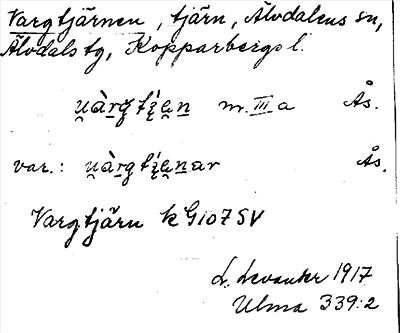 Vargtjärnen, tjärn, Älvdalens sn,
Älvdals tg, Kopparbergs l.
m. III a Ås.
var.: Ås.
Vargtjärn k G107 SV
L. Levander 1917
Ulma 339:2